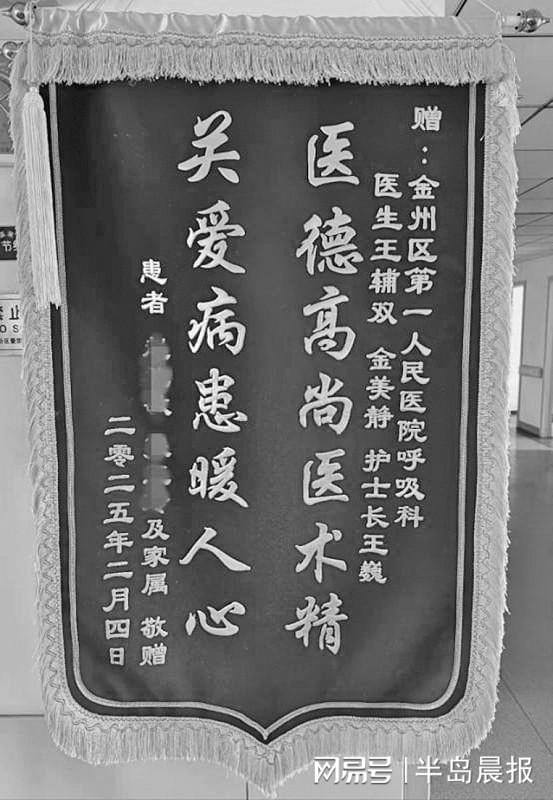 赠：金州区第一人民医院呼吸科
医生王辅双 金美静 护士长王巍
医德高尚医术精
关爱病患暖人心
患者
及家属 敬赠
二零二五年二月四日
网易号 | 半岛晨报